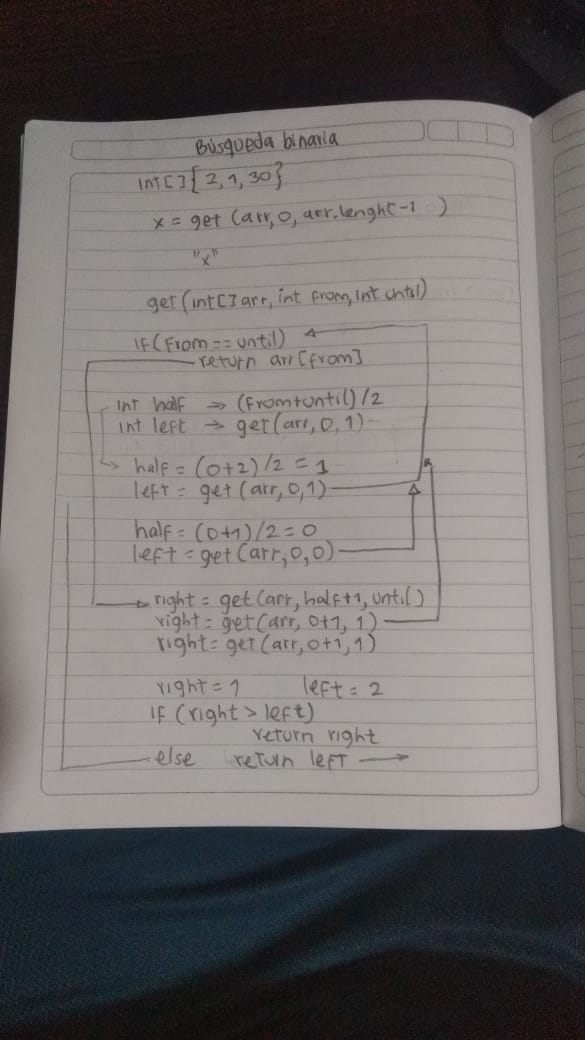 Búsqueda binaria
int[]{2,1,30}
x = get (arr, 0, arr.lenght-1 )
"x"
get (int[] arr, int from, int until)
if (from == until)
return arr [from]
int half → (from+until)/2
int left → get (arr, 0, 1)
half = (0+2)/2 = 1
left = get (arr, 0, 1)
half = (0+1)/2 = 0
left = get (arr, 0, 0)
right = get (arr, half+1, until)
right = get (arr, 0+1, 1)
right = get (arr, 0+1, 1)
right = 1 left = 2
if (right > left)
return right
else return left